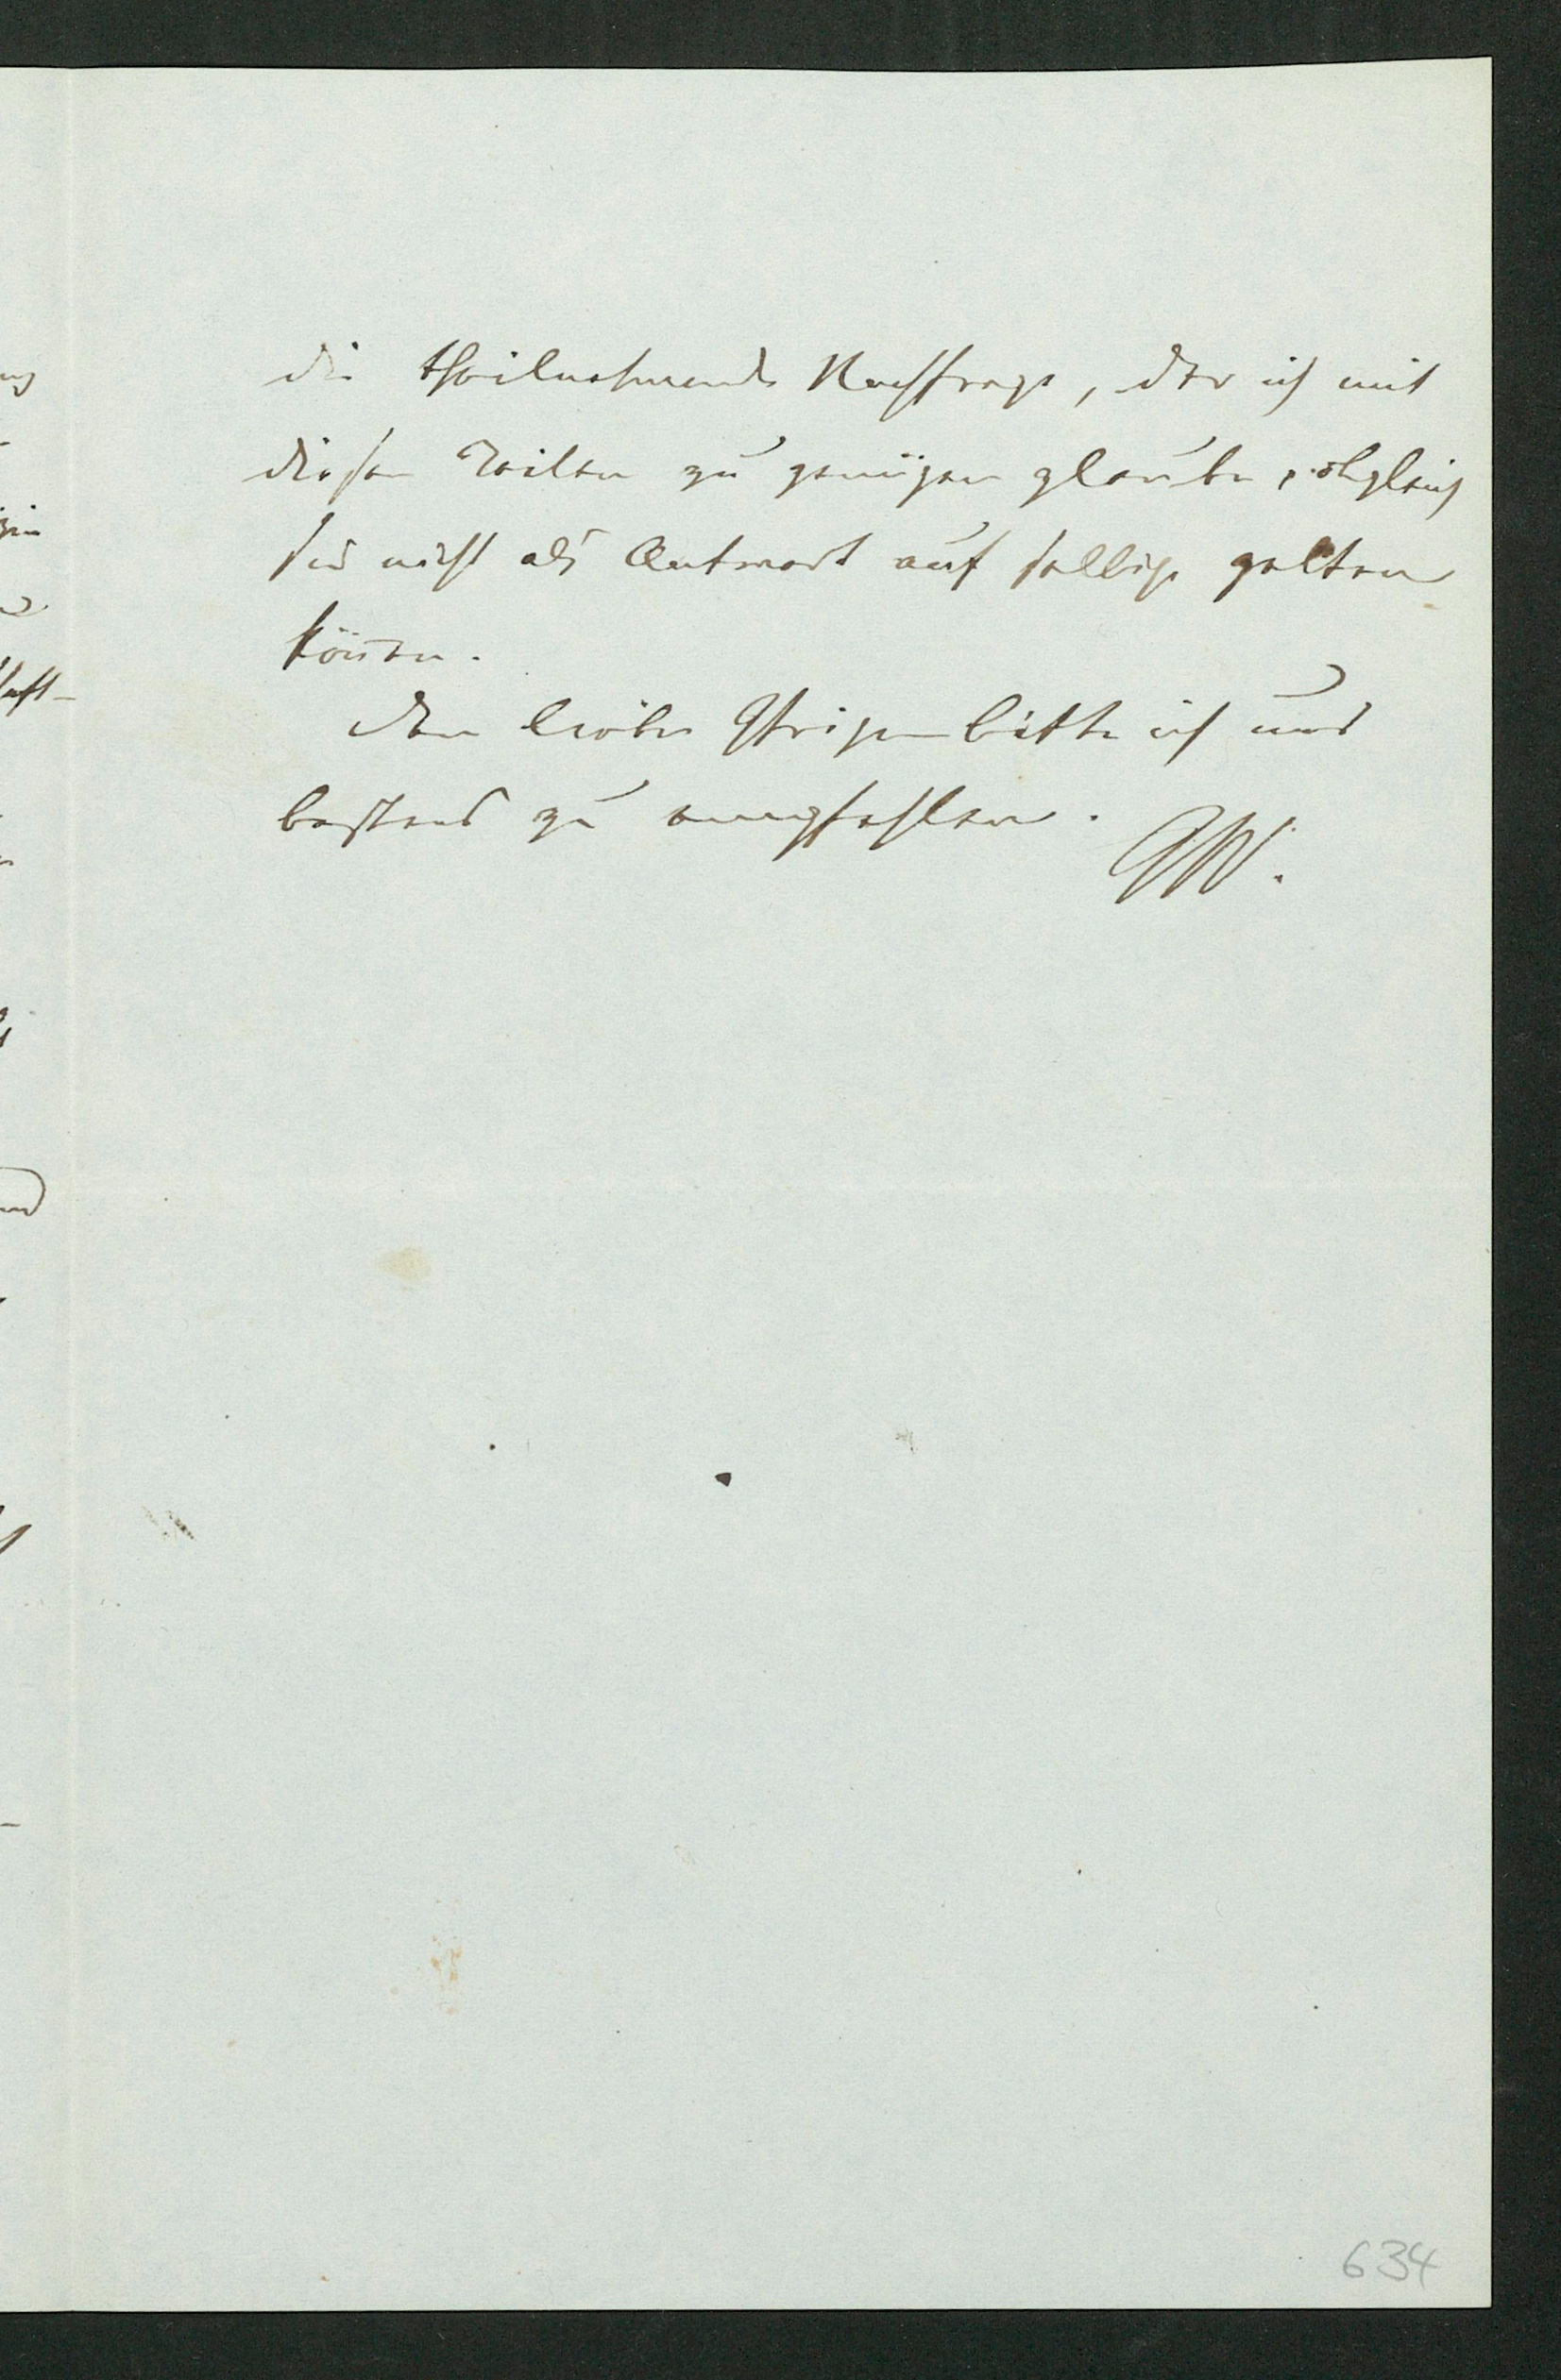 die theilnehmende Nachfrage, der ich mit
diesen Zeilen zu genügen glaube, obgleich
sie nicht als Antwort auf selbige gelten
köñen.
Den lieben Ihrigen bitte ich uns
bestens zu empfehlen.
GW.
634